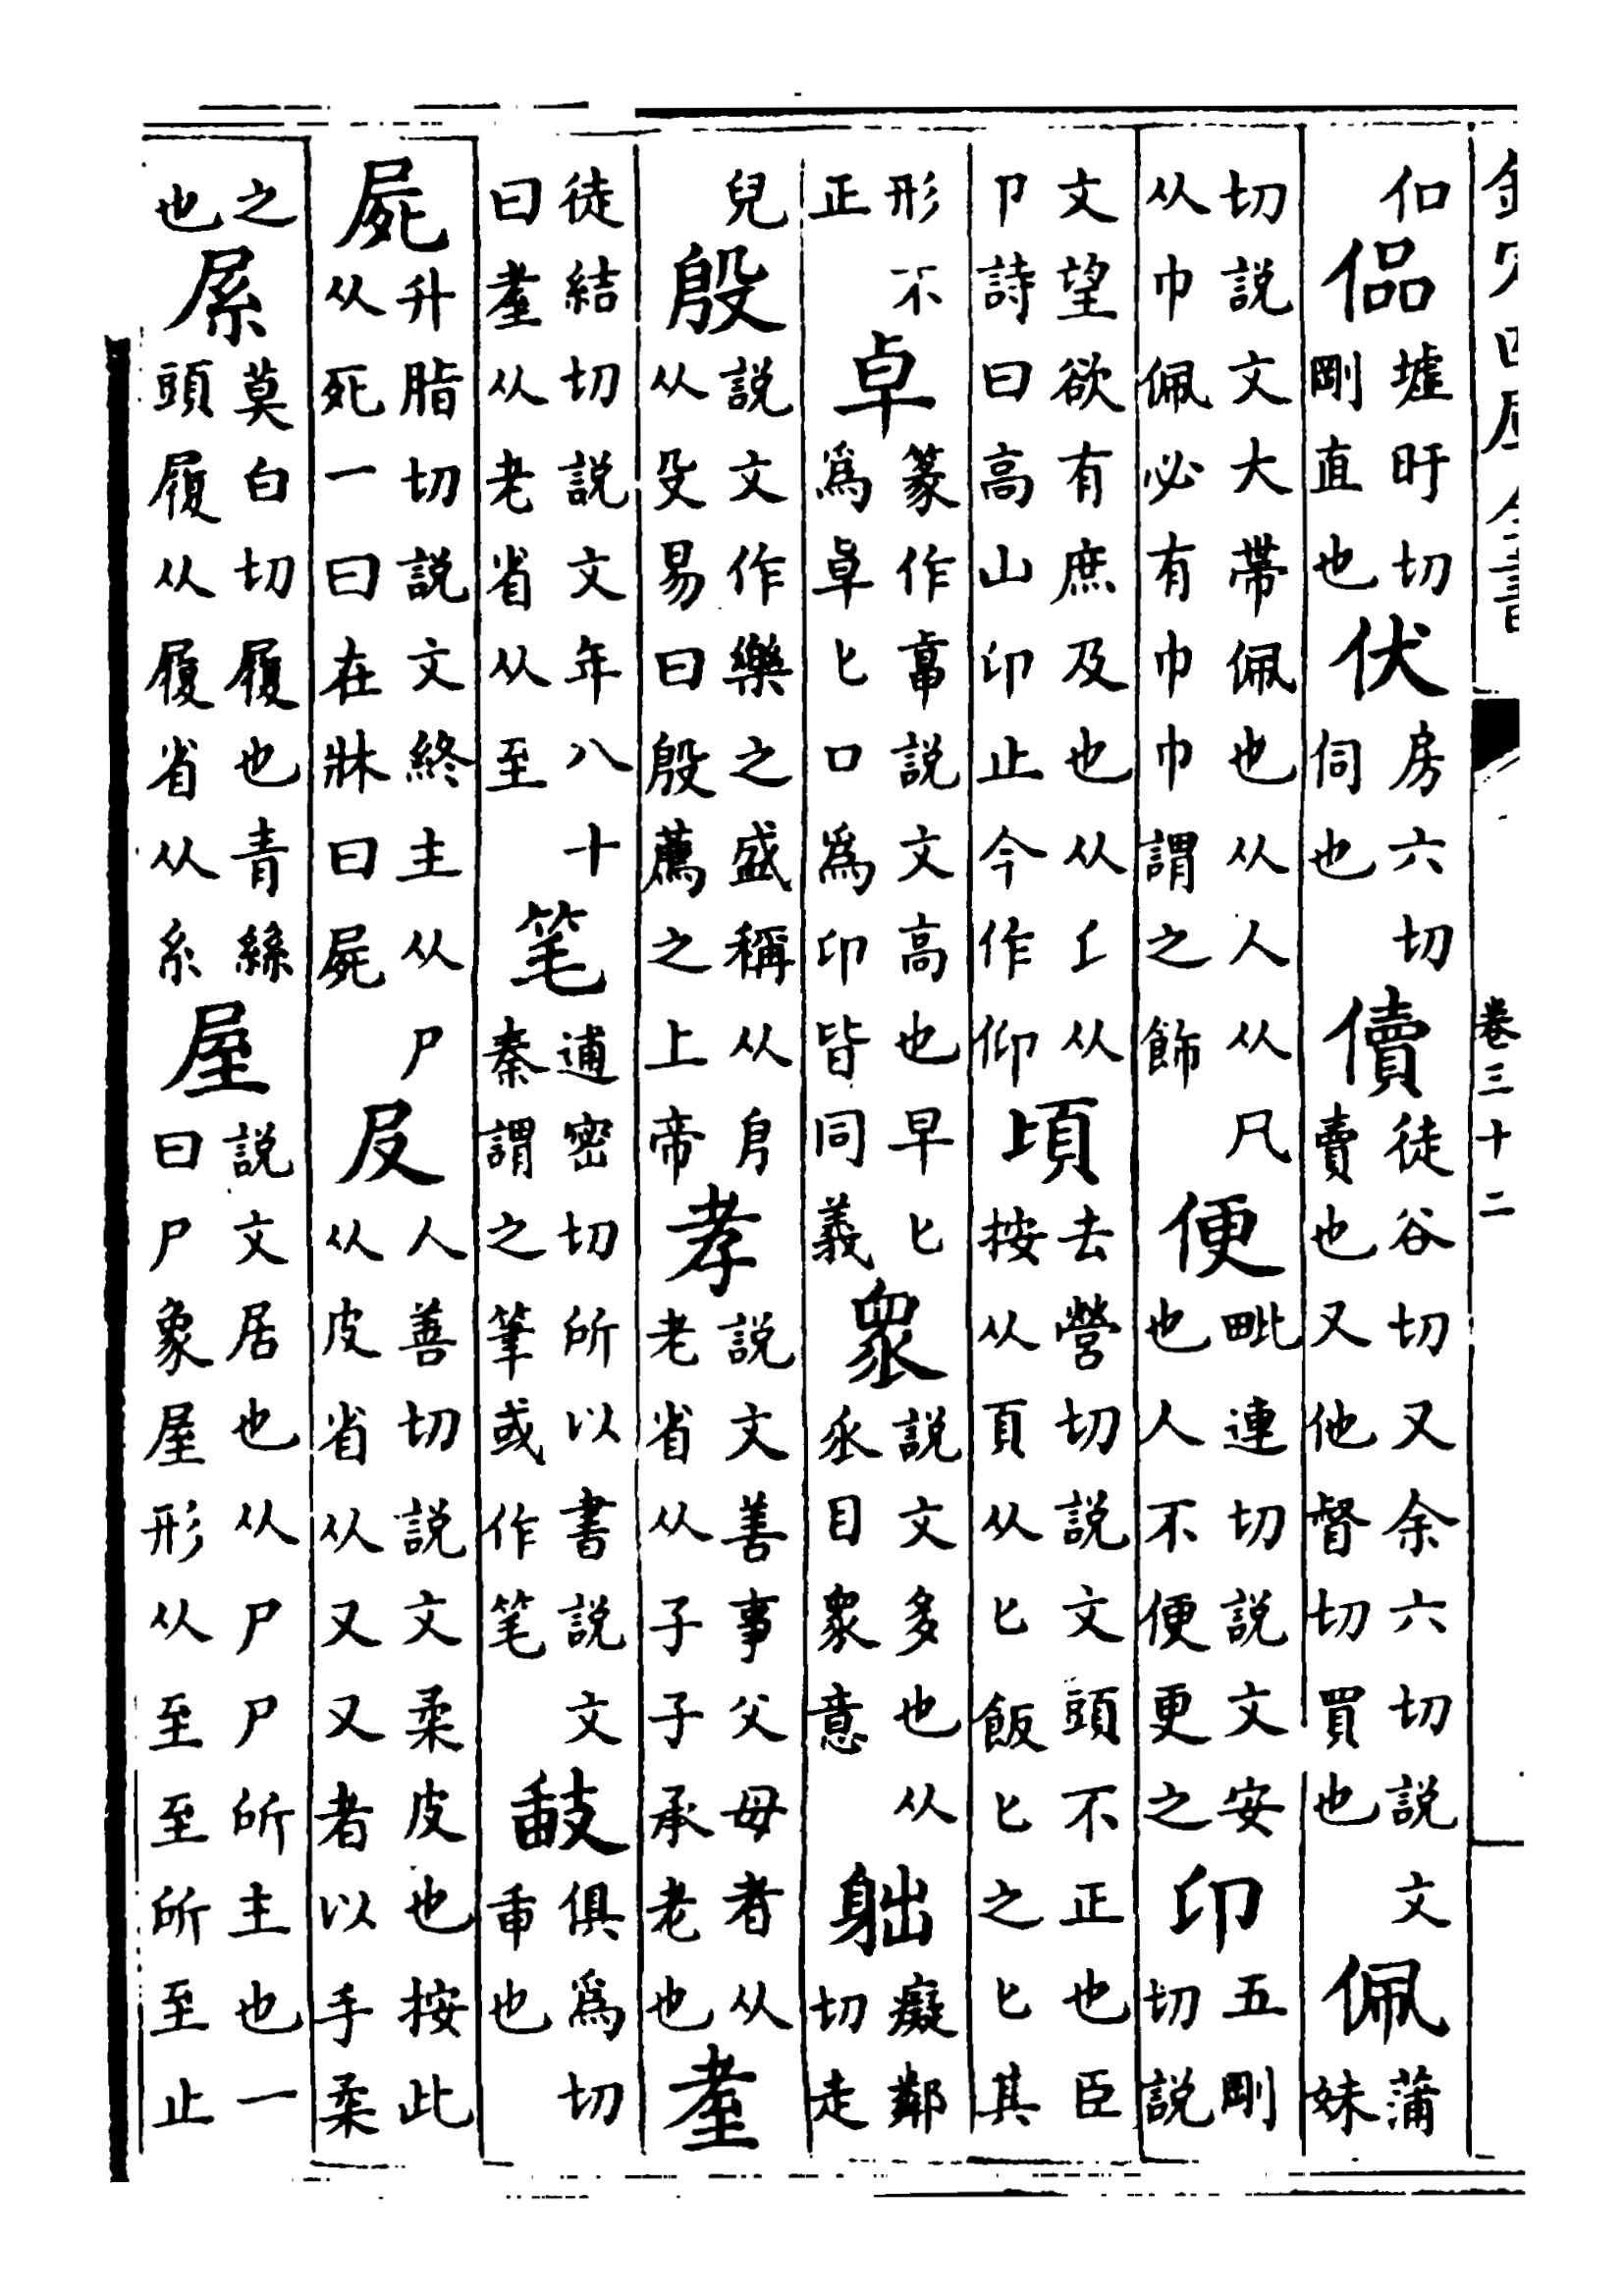 欽定四庫全書 卷三十二
㐰墟旰切剛直也伏房六切伺也儥徒谷切又余六切説文賣也又他督切買也佩蒲妹
切説文大帶佩也从人从凡从巾佩必有巾巾謂之飾便毗連切説文安也人不便更之卬五剛切説
文望欲有庶及也从匕从卩詩曰高山卬止今作仰頃去營切説文頭不正也臣按从頁从匕飯匕之匕其
形不正卓篆作説文高也早匕爲卓匕卩爲卬皆同義衆説文多也从㐺目衆意癡鄰切走
皃殷説文作樂之盛稱从㐆从殳易曰殷薦之上帝孝説文善事父母者从老省从子子承老也耋
徒結切説文年八十曰耋从老省从至笔逋密切所以書説文秦謂之筆或作笔俱爲切也
屍升脂切説文終主从尸从死一曰在牀曰屍㞋人善切説文柔皮也按此从皮省从又又者以手柔
之也莫白切履也青絲頭履从履省从糸屋説文居也从尸尸所主也一曰尸象屋形从至至所至止